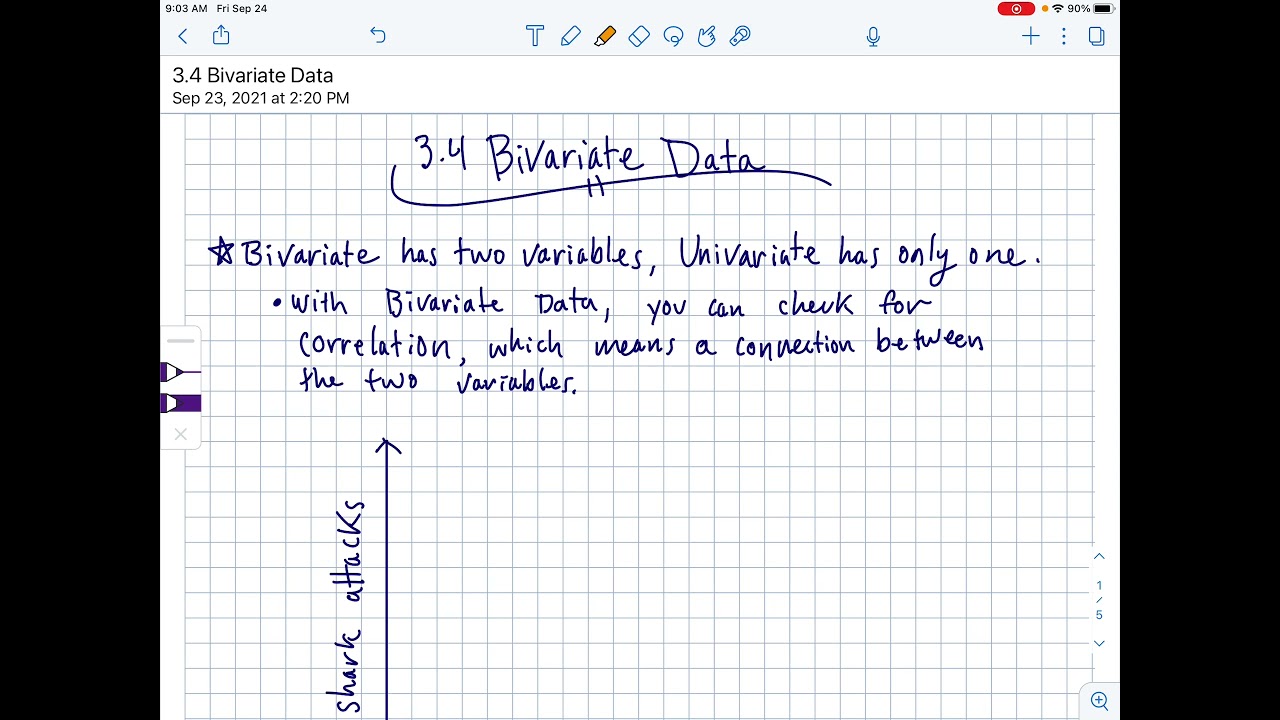 9:03 AM Fri Sep 24
90%
3.4 Bivariate Data
Sep 23, 2021 at 2:20 PM
3.4 Bivariate Data
☆ Bivariate has two variables, Univariate has only one.
• With Bivariate Data, you can check for
correlation, which means a connection between
the two variables.
shark attacks
1
/
5